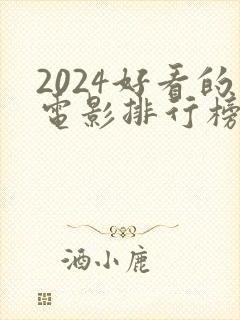 2024好看的
电影排行榜
酒小鹿